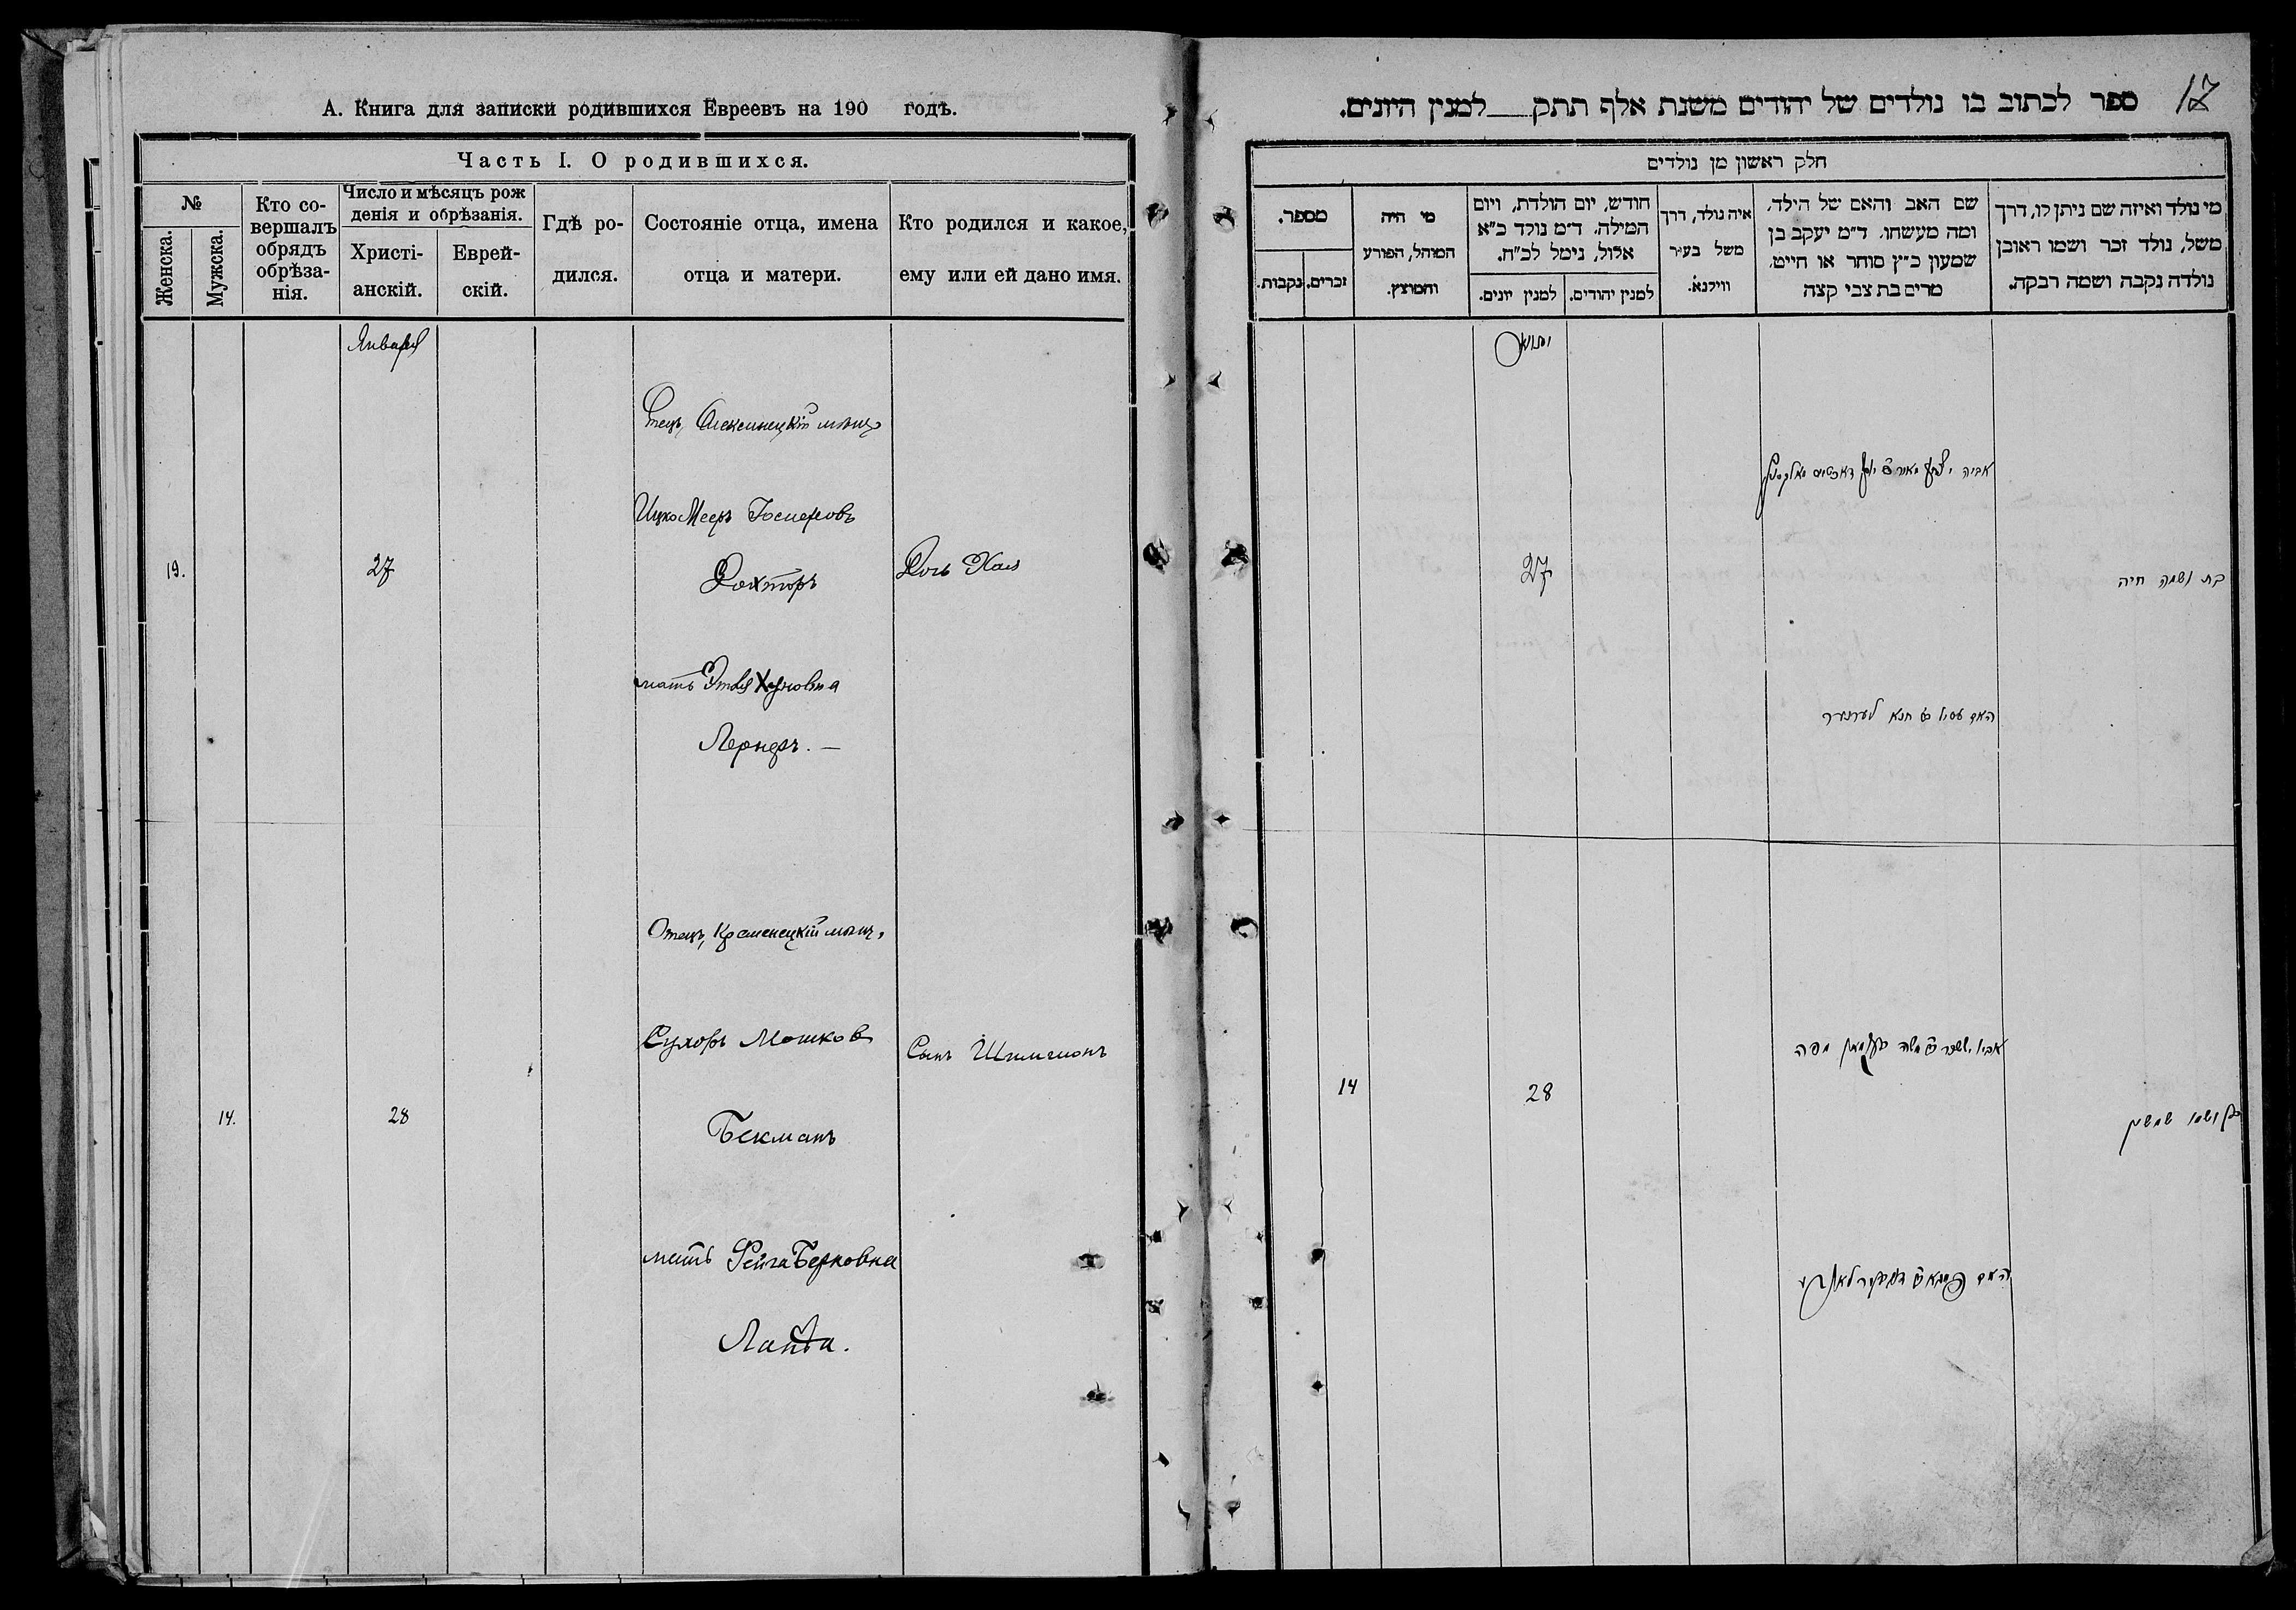 А. Книга для записки родившихся Евреевъ на 190 годъ.
Часть I. О родившихся.
№
Женска.
Мужска.
Кто со-
вершалъ
обрядъ
обрѣза-
нія.
Число и мѣсяцъ рож
денія и обрѣзанія.
Христі-
анскій.
Еврей-
скій.
Гдѣ ро-
дился.
Состояніе отца, имена
отца и матери.
Кто родился и какое,
ему или ей дано имя.
Января
Отецъ, мѣщ.
Ицко Мееръ Іосиповъ
19.
27
Дохторъ
Дочь Хая
мать Этля
Лернеръ. —
Отецъ, Кременецкій мѣщ.
Сухоръ Мошков
Сынъ Шимшонъ
14.
28
Бекманъ
мать Фейга Берковна
Ланда.
17
ספר לכתוב בו נולדים של יהודים משנת אלף תתק למנין היונים.
חלק ראשון מן נולדים
מספר.
נקבות.
זכרים.
מי היה
המוהל, הפורע
והמוצץ.
חודש, יום הולדת, ויום
המילה. ד״מ נולד כ״א
אלול, נימל לכ״ח.
למנין יונים.
למנין יהודים.
איה נולד, דרך
משל בעיר
ווילנא.
שם האב והאם של הילד,
ומה מעשהו. ד״מ יעקב בן
שמעון כ״ץ סוחר או חייט,
מרים בת צבי קצה
מי נולד ואיזה שם ניתן לו, דרך
משל, נולד זכר ושמו ראובן
נולדה נקבה ושמה רבקה.
אביה
27
בת ושמה חיה
האם חנא לערנער
14
28
בן ושמו שמשון
האם